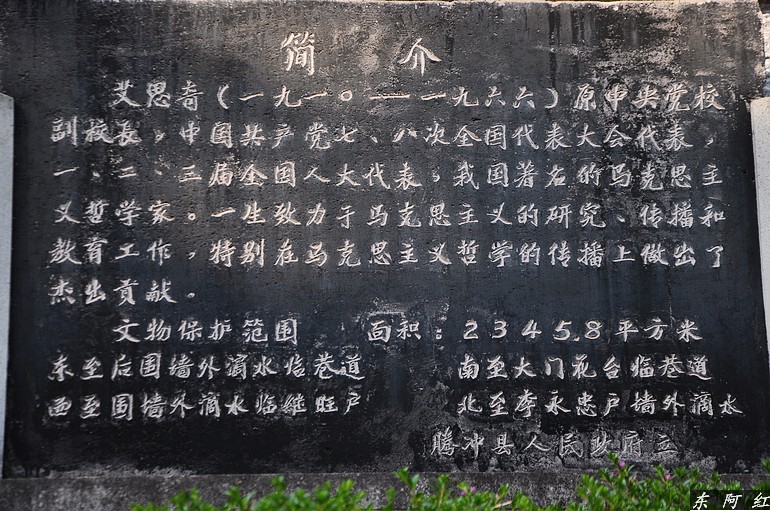 简 介
艾思奇(一九一〇——一九六六)原中央党校
副校长,中国共产党七、八次全国代表大会代表,
一、二、三届全国人大代表,我国著名的马克思主
义哲学家。一生致力于马克思主义的研究、传播和
教育工作,特别在马克思主义哲学的传播上做出了
杰出贡献。
文物保护范围 面积:2345.8平方米
东至后围墙外滴水临巷道 南至大门花台临巷道
西至围墙外滴水临维旺户 北至李永忠户墙外滴水
腾冲县人民政府立
东阿红